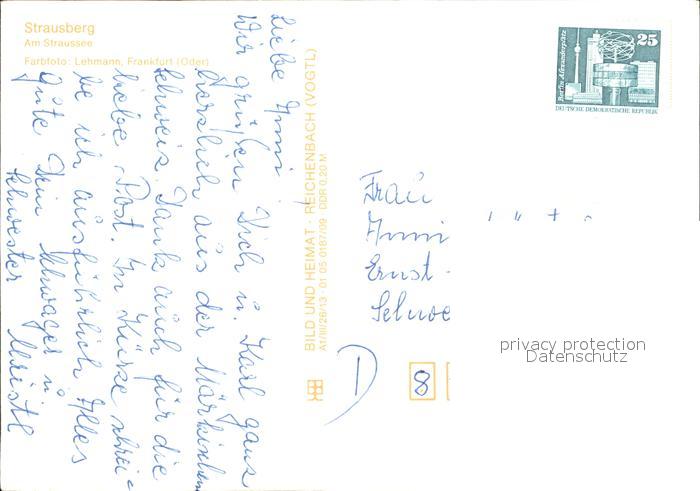 Strausberg
Am Straussee
Farbfoto: Lehmann, Frankfurt (Oder)
Liebe Anni!
Wir grüßen Dich u. Karl ganz
herzlich aus der Märkischen
Schweiz. Dank auch für die
liebe Post. In Kürze schrei-
be ich ausführlich Alles
Gute Dein Schwager u.
Schwester Christl
BILD UND HEIMAT · REICHENBACH (VOGTL)
A1/III/26/13 · 01 05 0187/09 DDR 0,20 M
25
Berlin, Alexanderplatz
DEUTSCHE DEMOKRATISCHE REPUBLIK
Frau
Anni
Ernst-
Schwe
D
8
privacy protection
Datenschutz